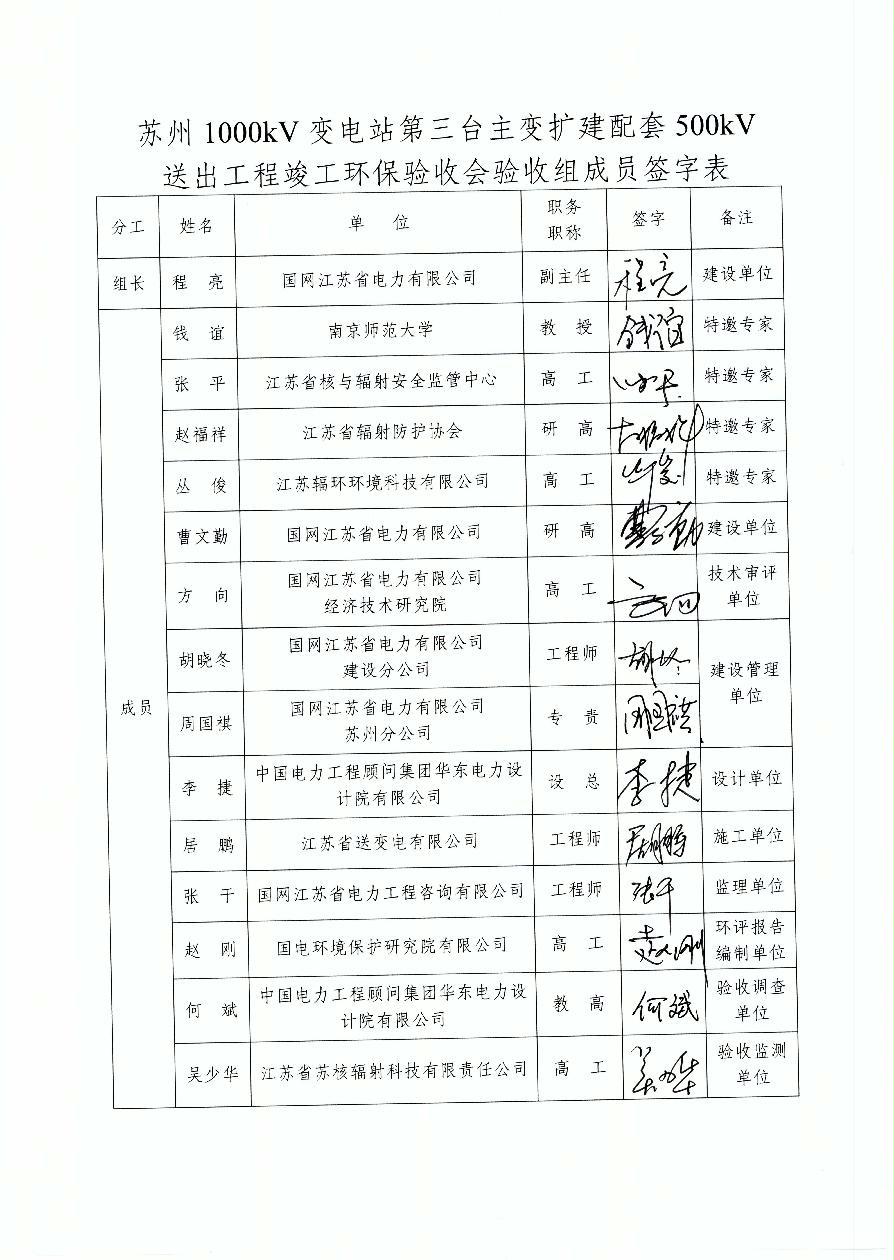 苏州 1000kV 变电站第三台主变扩建配套 500kV
送出工程竣工环保验收会验收组成员签字表
分工 姓名 单 位 职务职称 签字 备注
组长 程 亮 国网江苏省电力有限公司 副主任 程亮 建设单位
成员
钱 谊 南京师范大学 教 授 钱谊 特邀专家
张 平 江苏省核与辐射安全监管中心 高 工 特邀专家
赵福祥 江苏省辐射防护协会 研 高 特邀专家
丛 俊 江苏辐环环境科技有限公司 高 工 特邀专家
曹文勤 国网江苏省电力有限公司 研 高 建设单位
方 向 国网江苏省电力有限公司经济技术研究院 高 工 方向 技术审评单位
胡晓冬 国网江苏省电力有限公司建设分公司 工程师 建设管理单位
周国祺 国网江苏省电力有限公司苏州分公司 专 责 周国祺
李 捷 中国电力工程顾问集团华东电力设计院有限公司 设 总 李捷 设计单位
居 鹏 江苏省送变电有限公司 工程师 施工单位
张 干 国网江苏省电力工程咨询有限公司 工程师 张干 监理单位
赵 刚 国电环境保护研究院有限公司 高 工 赵刚 环评报告编制单位
何 斌 中国电力工程顾问集团华东电力设计院有限公司 教 高 何斌 验收调查单位
吴少华 江苏省苏核辐射科技有限责任公司 高 工 吴少华 验收监测单位